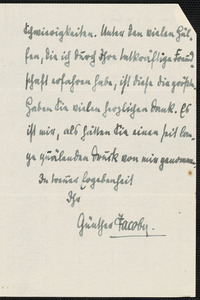 Schwierigkeiten. Unter den vielen Hül-
fen, die ich durch Ihre tatkräftige Freund
schaft erfahren habe, ist diese die größte.
Haben Sie vielen herzlichen Dank. Es
ist mir, als hätten Sie einen seit lan-
ge quälenden Druck von mir genommen.
In treuer Ergebenheit
Ihr
Günther Jacoby.